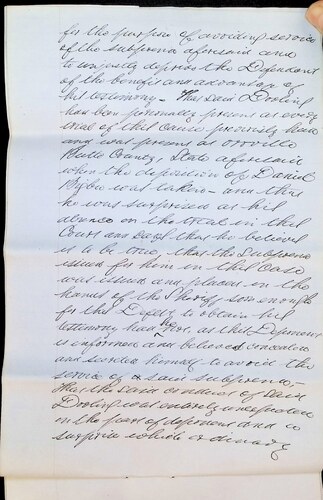 for the purpose of avoiding service
of the subpoena aforesaid and
to unjustly deprive the Defendant
of the benefit and advantage of
his testimony - That said Dooling
has been personally present at every
trial of this cause previously had
and was present at Oroville
Butte County, State aforesaid
when the deposition of Daniel
was taken - and that
he was surprised at his
absence on the trial in this
Court and says that he believes
it to be true, that the Subpoena
issued for him in this Case
was issued and placed in the
hands of the Sheriff soon enough
for this Deputy to obtain his
testimony had not, as this Deponent
is informed and believes concealed
and himself to avoid the
service of said subpoena -
That the said conduct of said
Dooling was entirely unexpected
on the part of deponent and a
surprise which ordinary